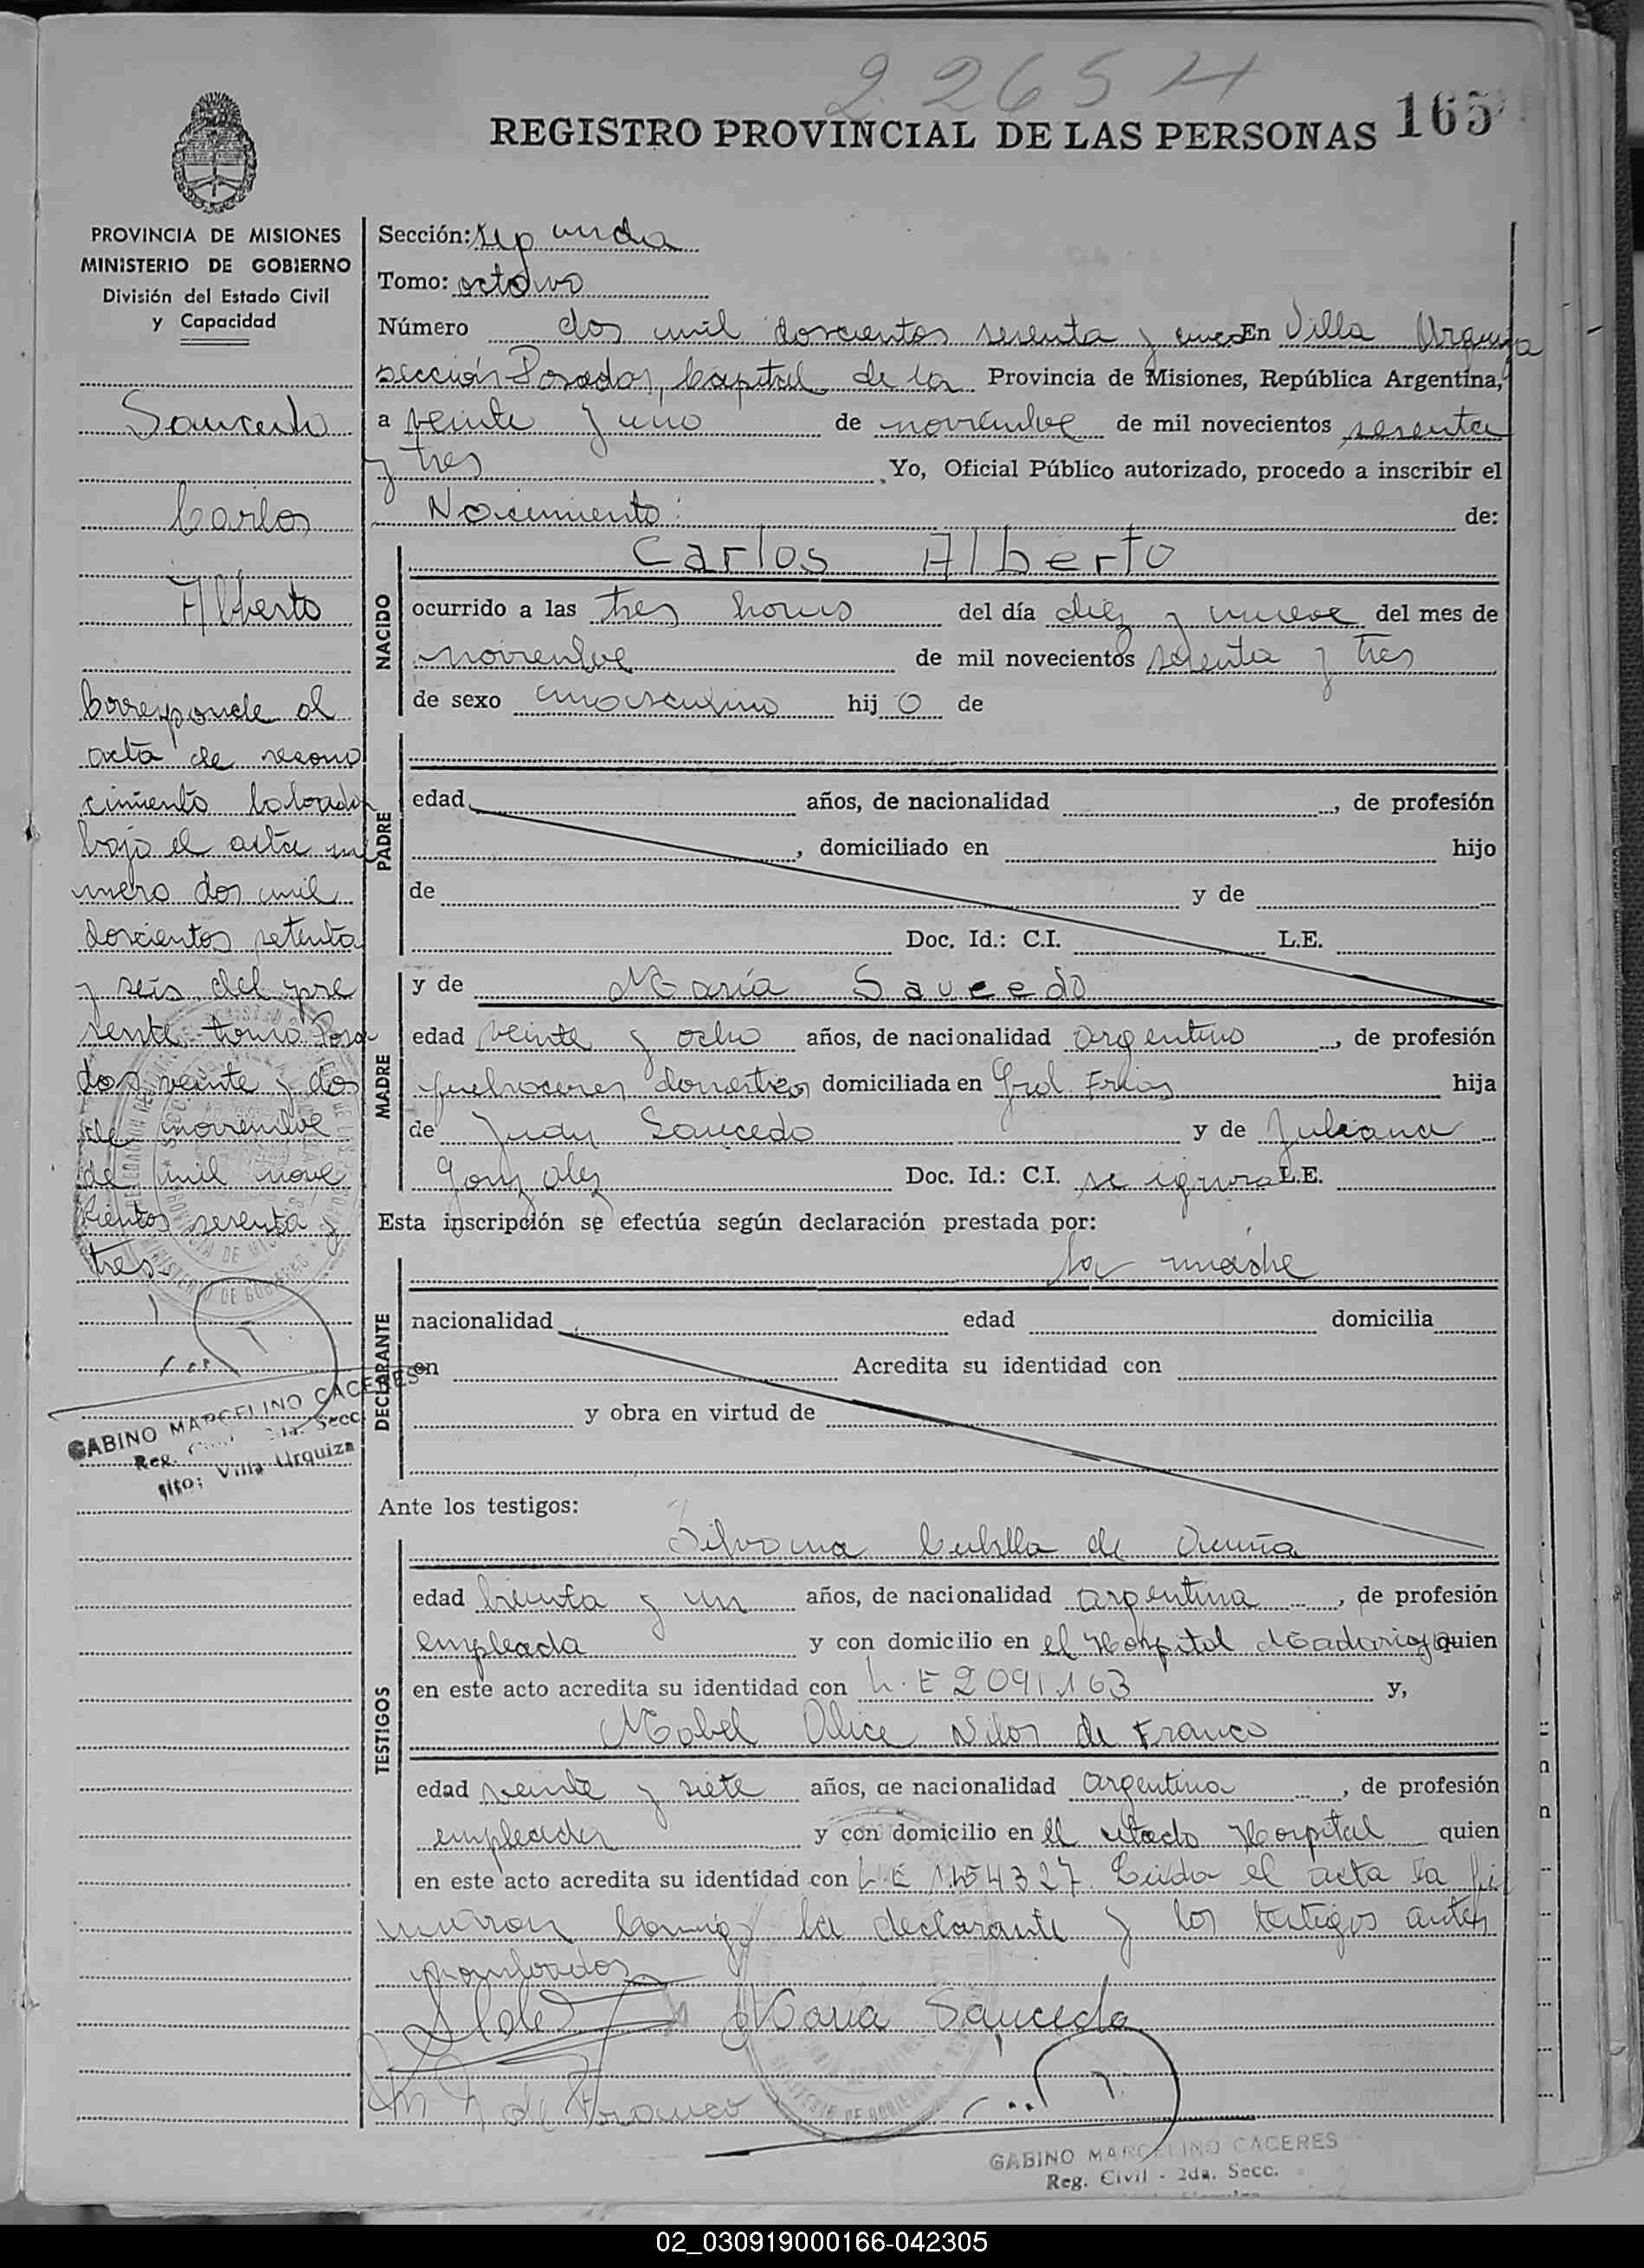 2265 H
REGISTRO PROVINCIAL DE LAS PERSONAS 165
PROVINCIA DE MISIONES
MINISTERIO DE GOBIERNO
División del Estado Civil
y Capacidad
Saucedo
Carlos
Alberto
Corresponde al
acta de recono
cimiento labrada
bajo el acta nú
mero dos mil
doscientos setenta
y seis del pre
sente tomo Posa
das veinte y dos
de noviembre
de mil nove
cientos sesenta y
tres.
GABINO MARCELINO CACERES
Reg. Civil 2da. Secc.
Villa Urquiza
Sección: segunda
Tomo: octavo
Número dos mil doscientos sesenta y cinco En Villa Urquiza
sección Posadas, Capital de la Provincia de Misiones, República Argentina,
a veinte y uno de noviembre de mil novecientos sesenta
y tres , Yo, Oficial Público autorizado, procedo a inscribir el
Nacimiento: de:
NACIDO
Carlos Alberto
ocurrido a las tres horas del día diez y nueve del mes de
noviembre de mil novecientos sesenta y tres
de sexo masculino hij o de
PADRE
edad años, de nacionalidad , de profesión
, domiciliado en hijo
de y de
Doc. Id.: C.I. L.E.
MADRE
y de María Saucedo
edad veinte y ocho años, de nacionalidad argentina , de profesión
quehaceres domesticos domiciliada en Gral. Frias hija
de Juan Saucedo y de Juliana
Gonzalez Doc. Id.: C.I. se ignora L.E.
Esta inscripción se efectúa según declaración prestada por:
DECLARANTE
la madre
nacionalidad edad domicilia
en Acredita su identidad con
y obra en virtud de
Ante los testigos:
TESTIGOS
Silvana Cubilla de Acuña
edad treinta y un años, de nacionalidad argentina , de profesión
empleada y con domicilio en el Hospital Madariaga quien
en este acto acredita su identidad con L.E 2091.163 y,
Mabel Alice de Franco
edad veinte y siete años, de nacionalidad argentina , de profesión
empleada y con domicilio en el citado Hospital quien
en este acto acredita su identidad con L.E 1.454327. Leida el acta la fir
maron conmigo la declarante y los testigos antes
nombrados
María Saucedo
de Franco
GABINO MARCELINO CACERES
Reg. Civil - 2da. Secc.
02_030919000166-042305